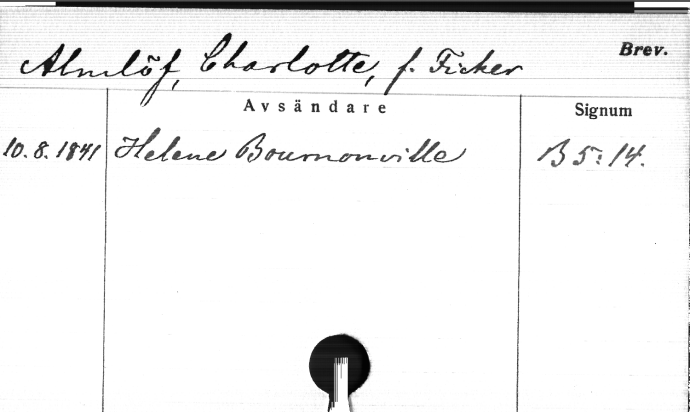 Brev.
Almlöf, Charlotte, f. Ficker
Avsändare Signum
10.8.1841 Helene Bournonville B 5:14.